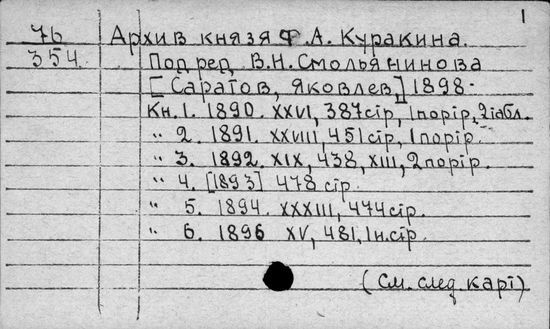 1
76 Архив князя Ф. А. Куракина.
354 Под ред. В. Н. Смольянинова
[Саратов, Яковлев] 1898.
Кн. 1. 1890. XXVI, 387 стр., 1 портр., 2 табл.
" 2. 1891. XXVIII, 451 стр., 1 портр.
" 3. 1892. XIX, 438, XIII, 2 портр.
" 4. [1893] 478 стр.
" 5. 1894. XXXIII, 474 стр.
" 6. 1896 XV, 481, 1 н. стр.
(См. след. карт)